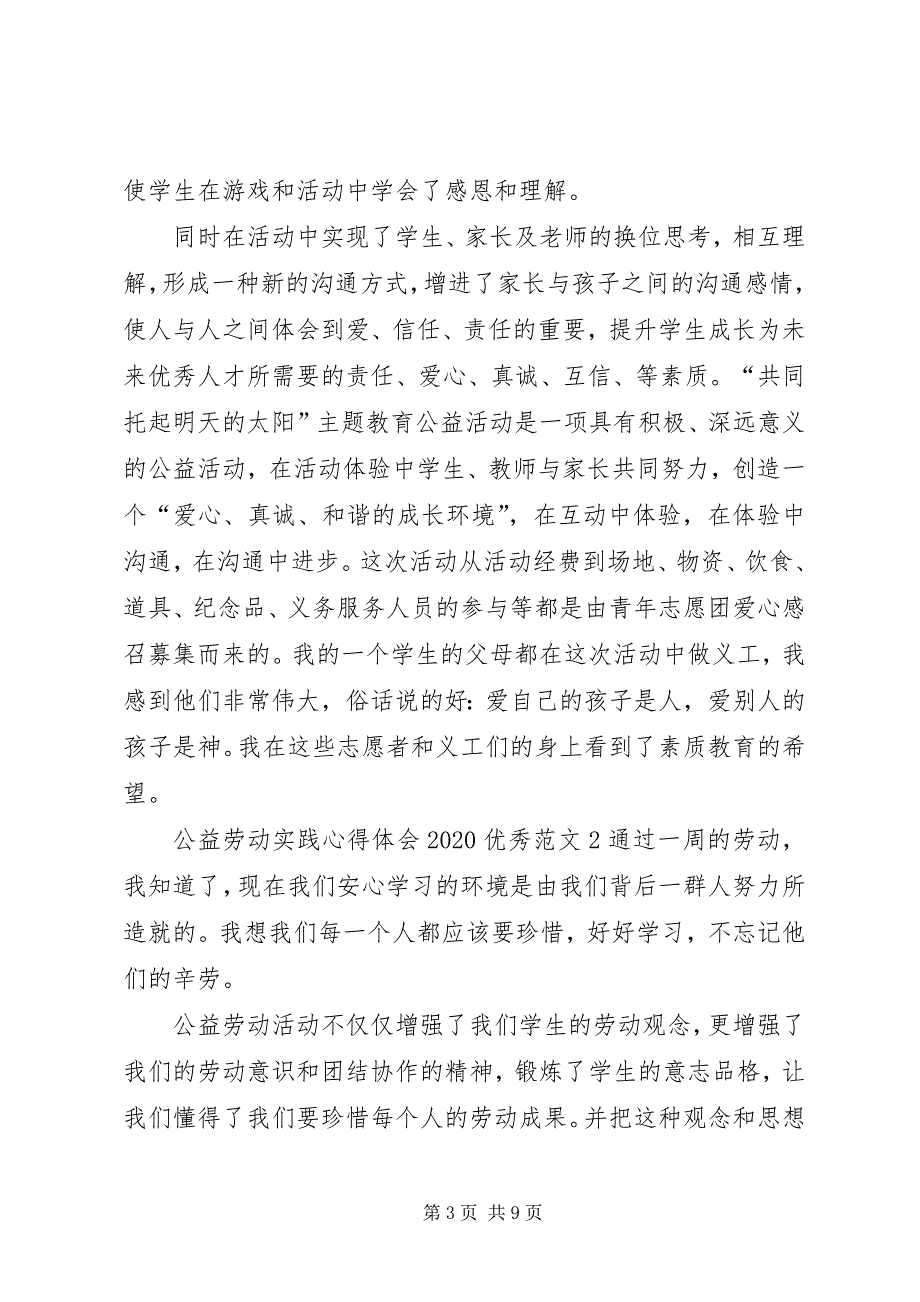 使学生在游戏和活动中学会了感恩和理解。
同时在活动中实现了学生、家长及老师的换位思考，相互理
解，形成一种新的沟通方式，增进了家长与孩子之间的沟通感情，
使人与人之间体会到爱、信任、责任的重要，提升学生成长为未
来优秀人才所需要的责任、爱心、真诚、互信、等素质。“共同
托起明天的太阳”主题教育公益活动是一项具有积极、深远意义
的公益活动，在活动体验中学生、教师与家长共同努力，创造一
个“爱心、真诚、和谐的成长环境”，在互动中体验，在体验中
沟通，在沟通中进步。这次活动从活动经费到场地、物资、饮食、
道具、纪念品、义务服务人员的参与等都是由青年志愿团爱心感
召募集而来的。我的一个学生的父母都在这次活动中做义工，我
感到他们非常伟大，俗话说的好：爱自己的孩子是人，爱别人的
孩子是神。我在这些志愿者和义工们的身上看到了素质教育的希
望。
公益劳动实践心得体会 2020 优秀范文 2 通过一周的劳动，
我知道了，现在我们安心学习的环境是由我们背后一群人努力所
造就的。我想我们每一个人都应该要珍惜，好好学习，不忘记他
们的辛劳。
公益劳动活动不仅仅增强了我们学生的劳动观念，更增强了
我们的劳动意识和团结协作的精神，锻炼了学生的意志品格，让
我们懂得了我们要珍惜每个人的劳动成果。并把这种观念和思想
第 3 页 共 9 页